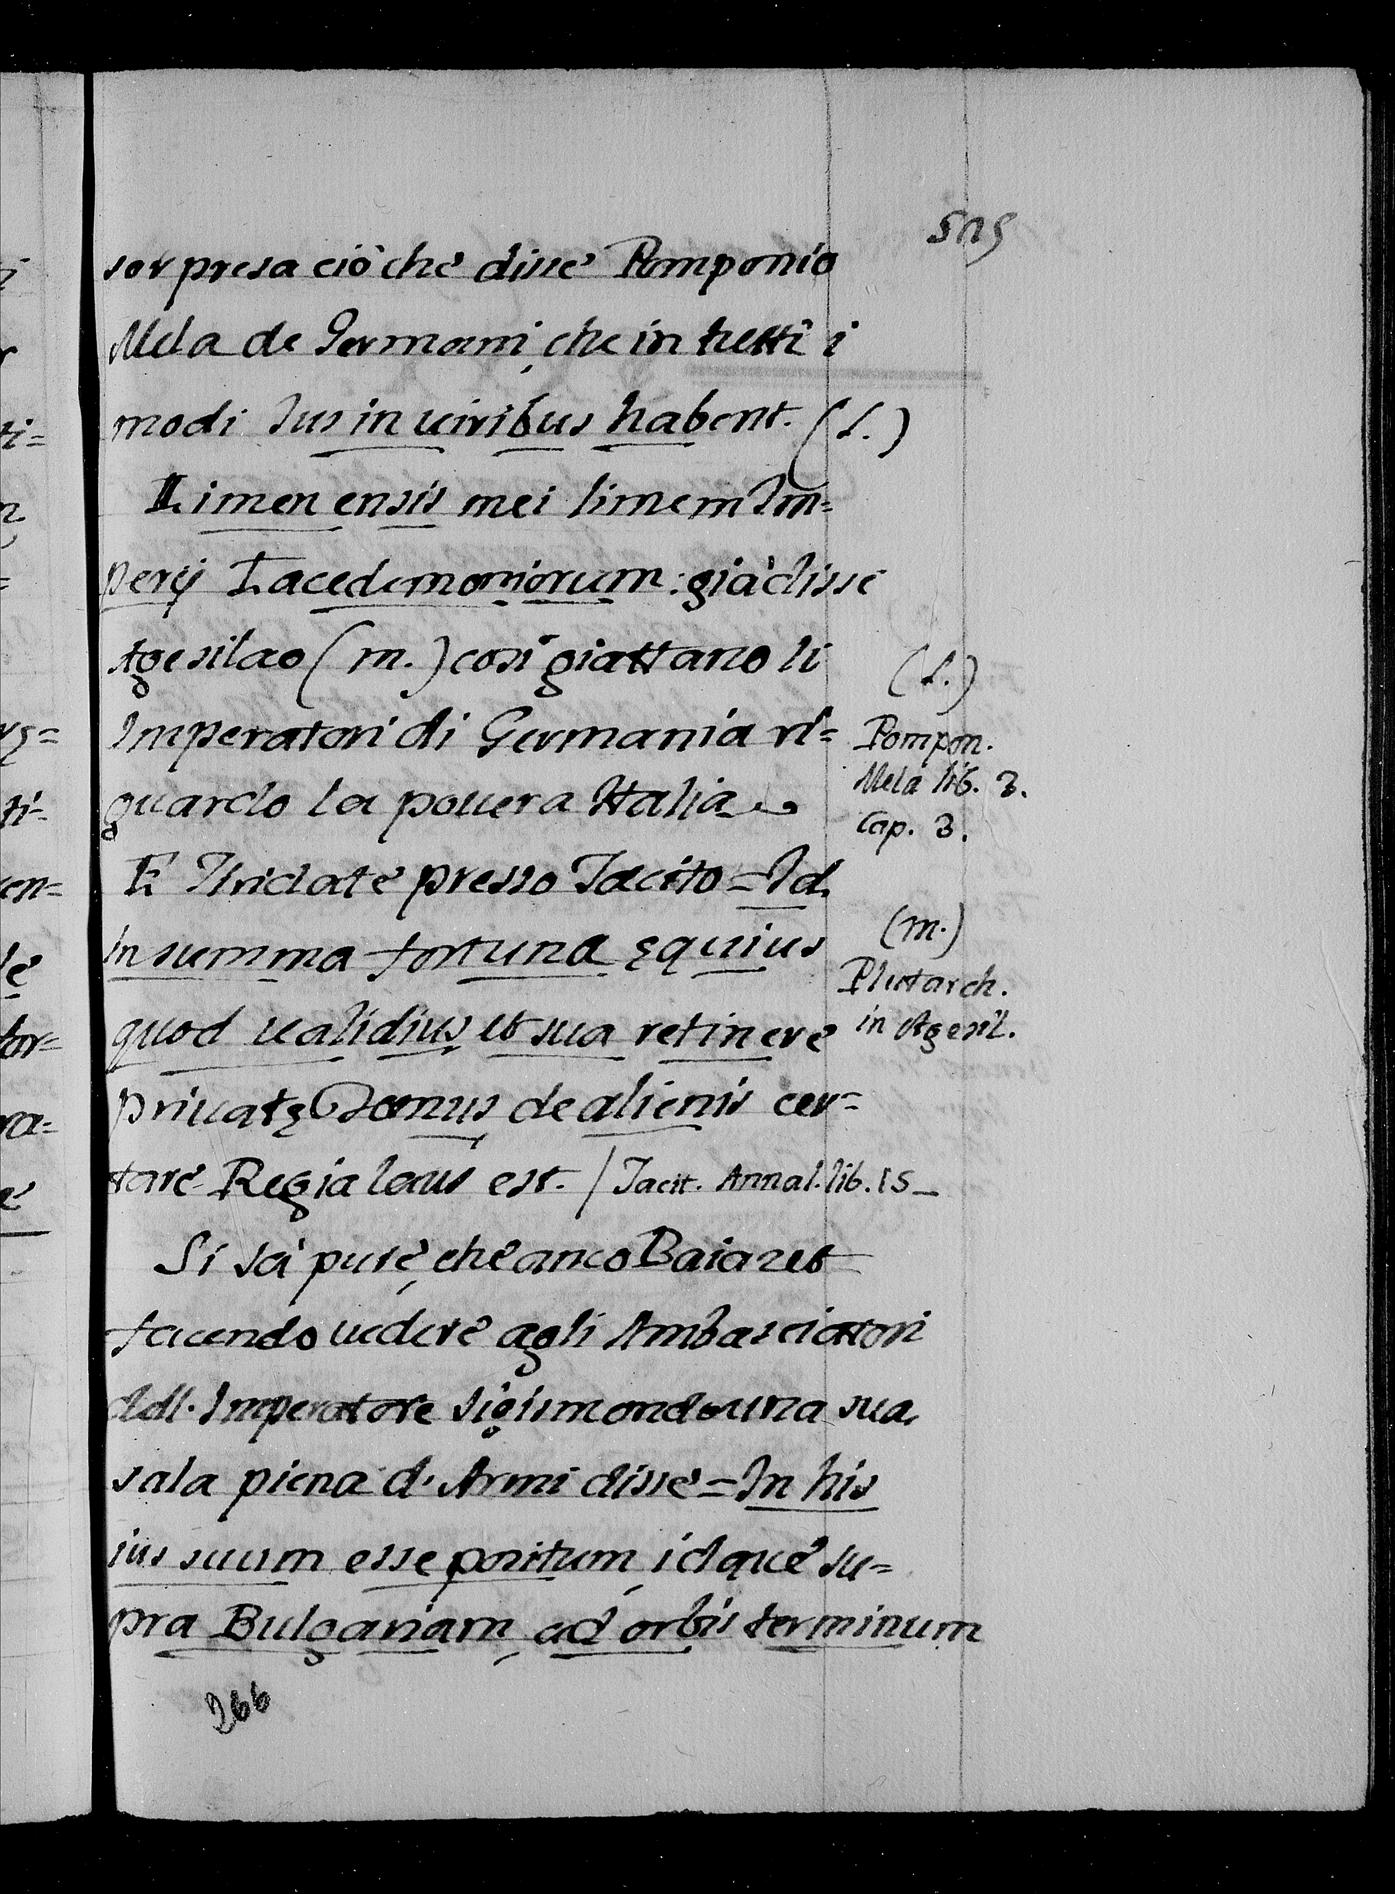 505
sorpresa ciò che disse Pomponio
Mela de Germani, che in tutti i
modi Ius in uiribus habent. (l.)
Limen ensis mei limem Im=
perij Lacedemoniorum: già disse
Agesilao (m.) così giattano li
Imperatori di Germania ri=
guardo la pouera Italia
E Tiridate presso Tacito = Id
in summa fortuna ęquius
quod ualidius, et sua retinere
priuatę Domus, de alienis cer=
tare Regia laus est. / Tacit. Annal. lib. 15_
Si sà pure, che anco Baiazet
facendo uedere agli Ambasciatori
dell'Imperatore Sigismondo una sua
sala piena d'Armi disse = In his
ius suum esse positum, idque su=
pra Bulgariam, ad orbis terminum
266
(l.)
Pompon.
Mela lib. 3.
Cap. 3.
(m.)
Plutarch.
in Agesil.